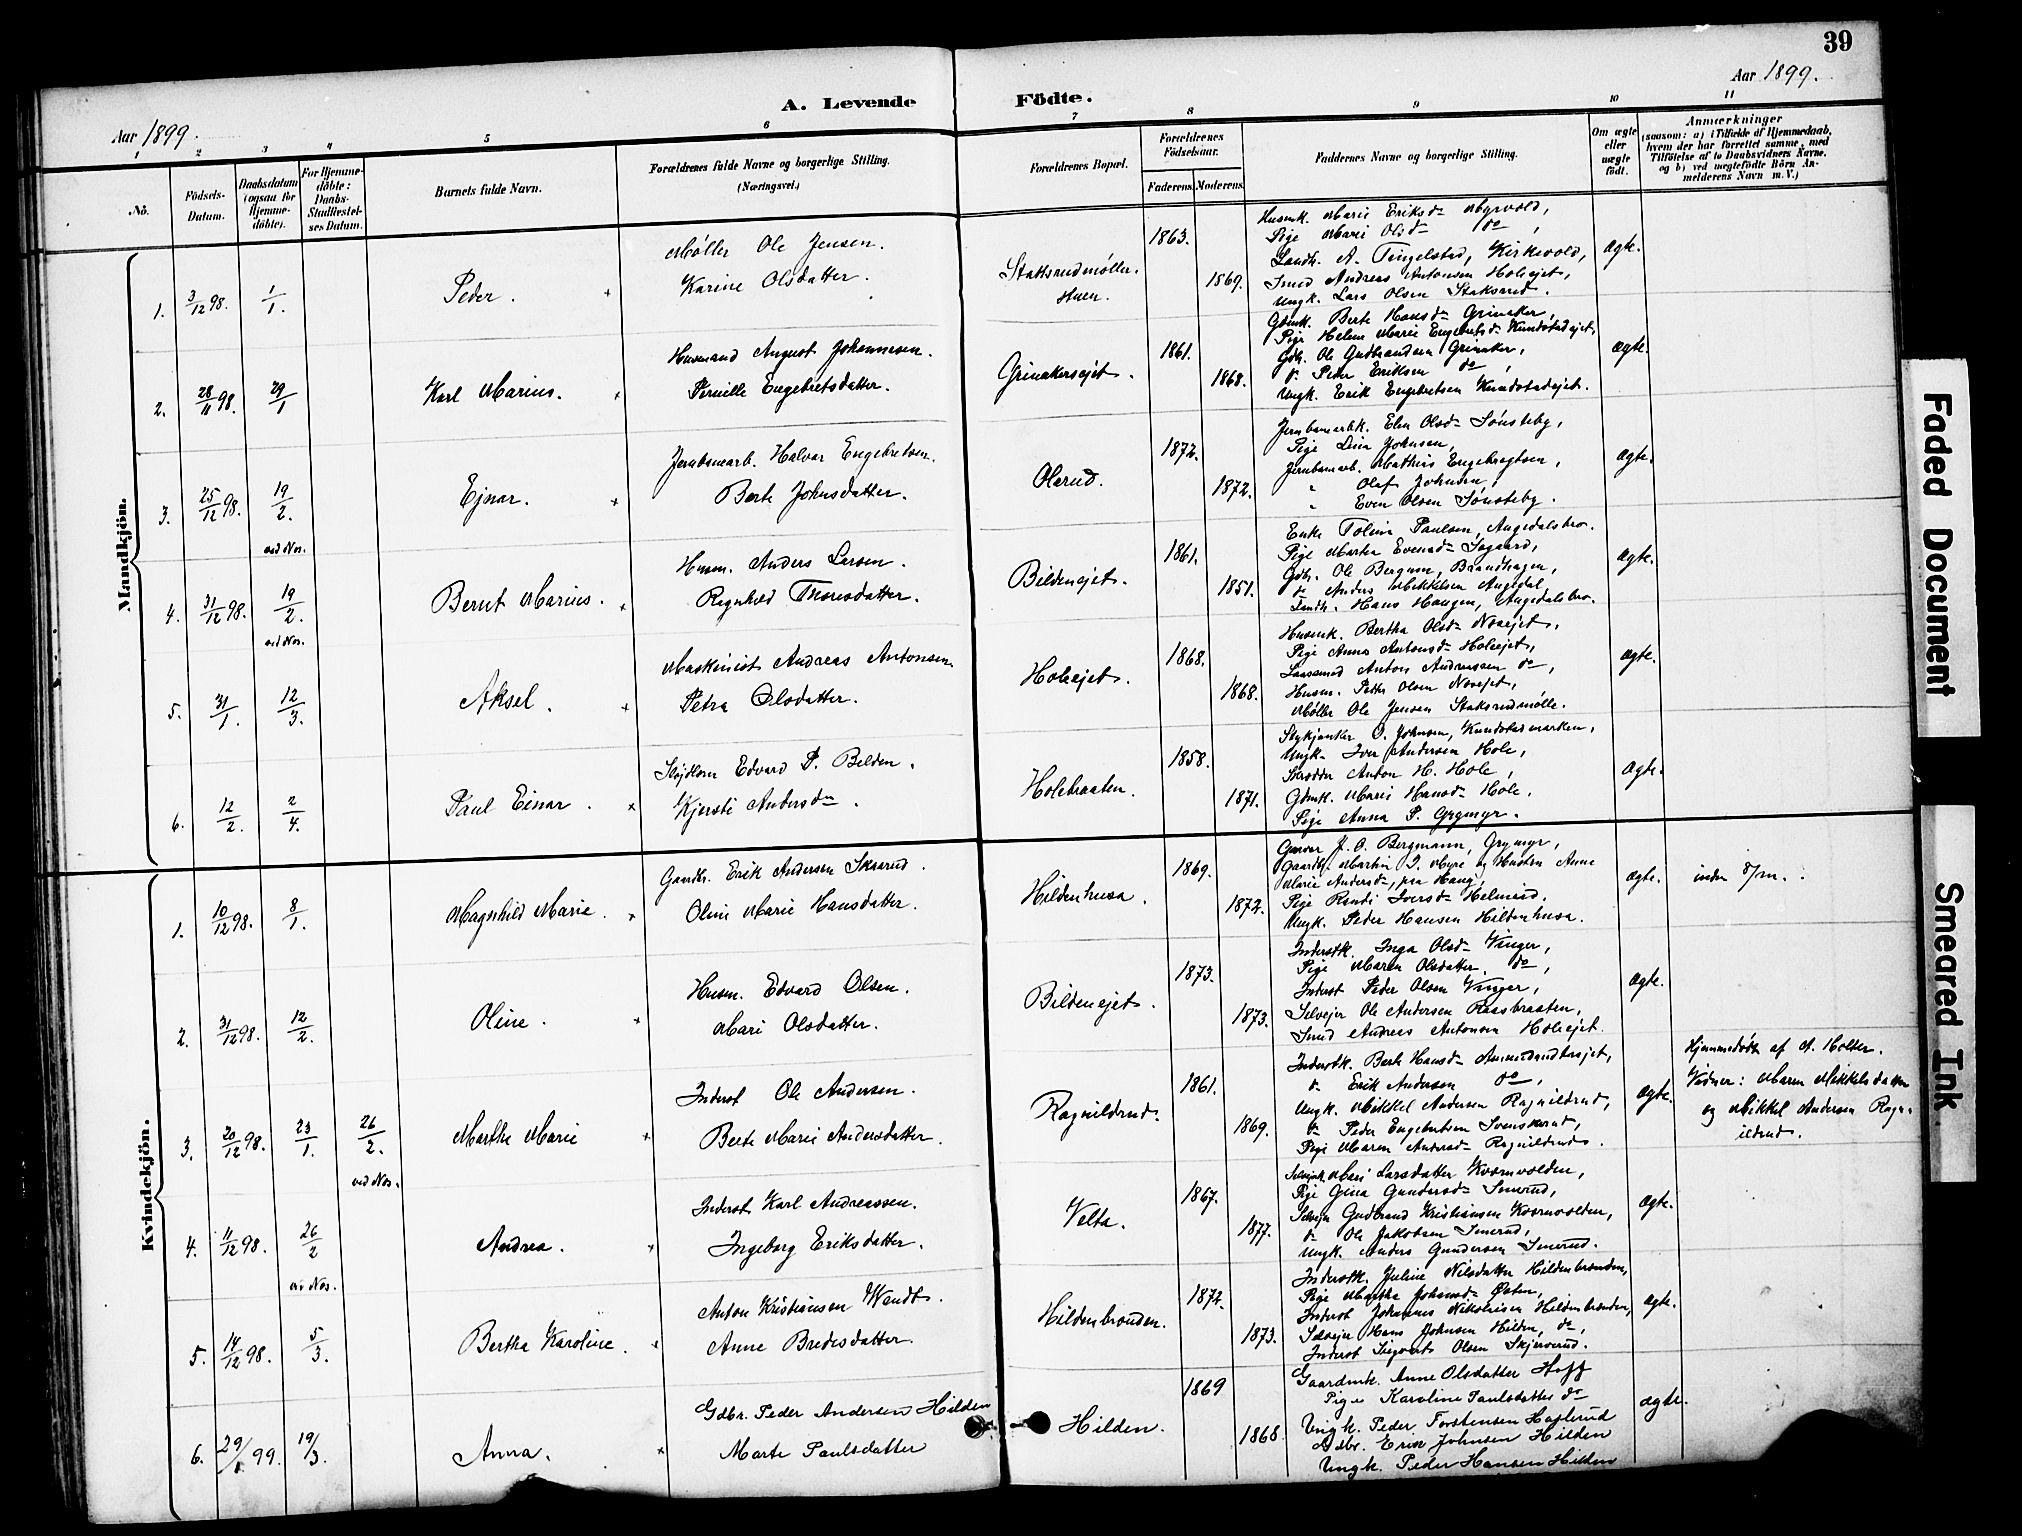 39
Aar 1899.
A. Levende Födte.
Aar 1899.
1 2 3 4 5 6 7 8 9 10 11
No.
Födsels-Datum.
Daabsdatum (ogsaa for Hjemmedöbte).
For Hjemmedöbte: Daabs-Stadfæstelses Datum.
Barnets fulde Navn.
Forældrenes fulde Navne og borgerlige Stilling.
(Næringsvei.)
Forældrenes Bopæl.
Forældrenes Födselsaar.
Faderens. Moderens.
Faddernes Navne og borgerlige Stilling.
Om ægte eller uægte födt.
Anmærkninger
(saasom: a) i Tilfælde af Hjemmedaab, hvem der har forrettet samme, med Tilföielse af to Daabsvidners Navne, og b) ved uægtefödte Börn Anmelderens Navn m. V.)
Mandkjön.
1. 3/12 98. 1/1. Peder.
Møller Ole Jensen.
Karine Olsdatter.
Stattsrudmøllen.
1863. 1869.
Husmk. Mari Eriksd. Myrvold,
Pige Mari Olsd. do,
Landh. A. Tingelstad, Kirkevold,
Smed Andreas Antonsen Holeejet,
Ungk. Lars Olsen Staksrud.
ægte.
2. 28/11 98. 29/1 Karl Marius.
Husmand August Johannesen.
Pernille Engebretsdatter.
Grinakersejet.
1861. 1868.
Gdmk. Berte Hansd. Grinaker,
Pige Helene Marie Engebretsd. Kundstadejet,
Gdb. Ole Gudbrandsen Grinaker,
do Peder Eriksen do,
Ungk. Erik Engebretsen Kundstadejet.
ægte.
3. 25/12 98. 19/2. Ejnar.
Jernbanearb. Halvor Engebretsen.
Berte Johnsdatter.
Olerud.
1872. 1872.
Jernbanearbk. Elen Olsd. Sønsteby,
Pige Lina Johnsen,
Jernbanearb. Mathias Engebregtsen,
" Olaf Johnsen,
" Even Olsen Sønsteby.
ægte.
ved Nos.
4. 31/12 98. 19/2. Bernt Marius.
Husm. Anders Larsen.
Ragnhild Thorsdatter.
Bildenejet.
1861. 1851.
Enke Toline Paulsen, Augedalsbro.
Pige Martha Evensd. Sogaard,
Gdb. Ole Bergum, Brandhagen,
do Anders Mikkelsen Augedal,
Landh. Hans Haugen, Augedalsbro.
ægte.
ved Nos.
5. 31/1. 12/3. Aksel.
Maskinist Andreas Antonsen
Petra Olsdatter.
Holeejet.
1868. 1868.
Husmk. Bertha Olsd. Noeejet,
Pige Anna Antonsd. Holeejet,
Laasesmed Anton Andreassen do,
Husm. Petter Olsen Noeejet,
Møller Ole Jensen Staksrudmølle.
ægte.
6. 12/2. 2/4. Paul Einar.
Edvard P. Bilden.
Kjersti Andersd.
Holebraaten.
1858. 1871.
O. Johnsen, Kundstadmarken,
Ungk. Iver Andersen Hole,
Skrædder Anton H. Hole,
Gdmk. Mari Hansd. Hole,
Pige Anna P. Grymyr.
ægte.
Kvindekjön.
1. 10/12 98. 8/1. Magnhild Marie.
Gaardbr. Erik Andersen Skiarud.
Oline Marie Hansdatter.
Hildenhusa.
1869. 1872.
J. O. Bergmann, Grymyr,
Gaardb. Martin I. Myre og Hustru Anne
Marie Andersd., paa Haug,
Pige Randi Iversd. Helmeid,
Ungk. Peder Hansen Hildenhusa.
ægte.
2. 31/12 98. 12/2. Oline.
Husm. Edvard Olsen.
Mari Olsdatter.
Bildenejet.
1873. 1873.
Inderstk. Inga Olsd. Vinger,
Pige Maren Olsdatter do,
Inderst Peder Olsen Vinger,
Selvejer Ole Andersen Raasbraaten,
Smed Andreas Antonsen Holeejet.
ægte.
3. 20/12 98. 23/1. 26/2. Marthe Marie
Inderst Ole Andersen.
Berte Marie Andersdatter.
Ragnildrud.
1861. 1869.
Inderstk. Berte Hansd. Amundrudbrøjet,
do Erik Andersen do,
Ungk. Mikkel Andersen Ragnildrud,
do Peder Engebretsen Svenskerud,
Pige Maren Andersd. Ragnildrud.
ægte.
Hjemmedøbt af A. Holter.
Vidner: Maren Mikkelsdatter
og Mikkel Andersen Ragnildrud.
ved Nos.
4. 11/12 98. 26/2 Andrea.
Inderst Karl Andreassen.
Ingeborg Eriksdatter.
Velta.
1867. 1877.
Selvejerk. Mari Larsdatter Kværnvolden,
Pige Gina Gundersd. Smerud,
Selvejer Gudbrand Kristiansen Kværnvolden,
do Ole Jakobsen Smerud,
Ungk. Anders Gundersen Smerud.
ægte.
ved Nos.
5. 14/12 98. 5/3. Bertha Karoline.
Anton Kristiansen Wendt.
Anne Bredesdatter.
Hildenbrønden.
1872. 1873.
Inderstk. Juline Nilsdatter Hildenbrønden,
Pige Martha Johansd. Østen,
Inderst Johannes Nikolaisen Hildenbrønden,
Selvejer Hans Johnsen Hilden, do,
Inderst Sigvart Olsen Skjerverud.
ægte.
6. 29/1 99. 19/3. Anna.
Gdbr. Peder Andersen Hilden
Marte Paulsdatter
Hilden.
1869 1868.
Gaardmk. Anne Olsdatter Hoff
Pige Karoline Paulsdatter do
Ungk. Peder Torstensen Haslerud
Gdbr. Erik Johnsen Hilden
Ungk. Peder Hansen Hilden
ægte.
Faded Document
Smeared Ink.